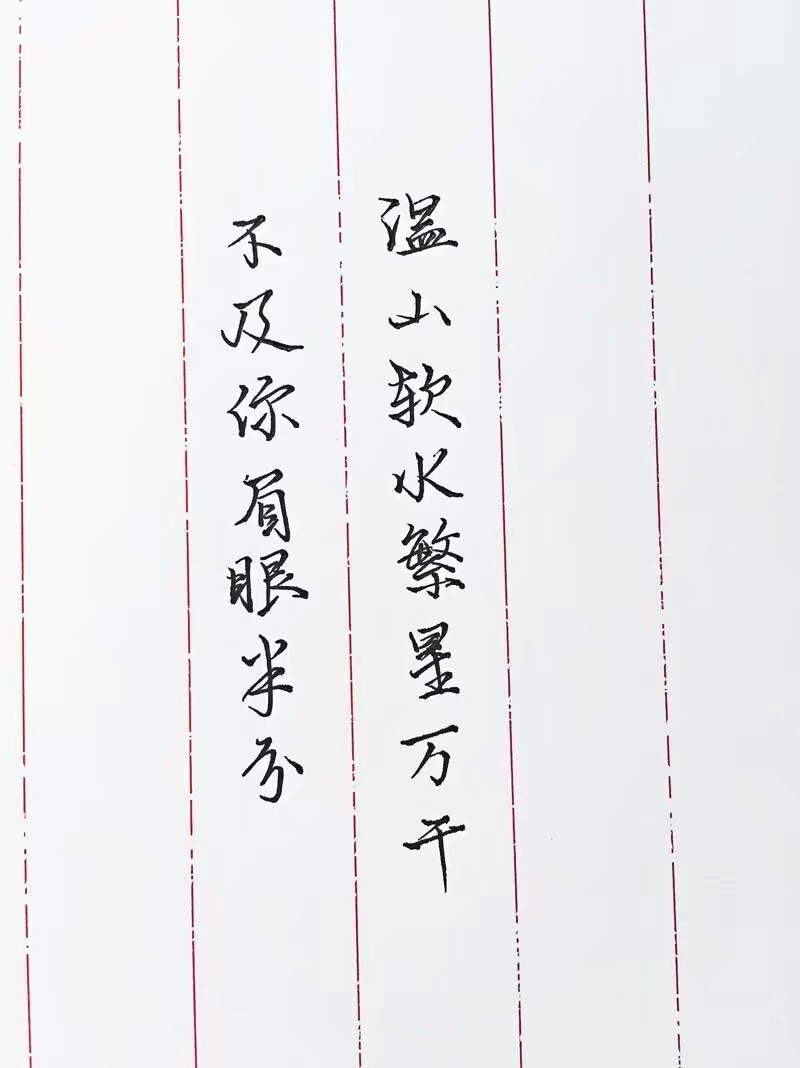 温山软水繁星万千
不及你眉眼半分